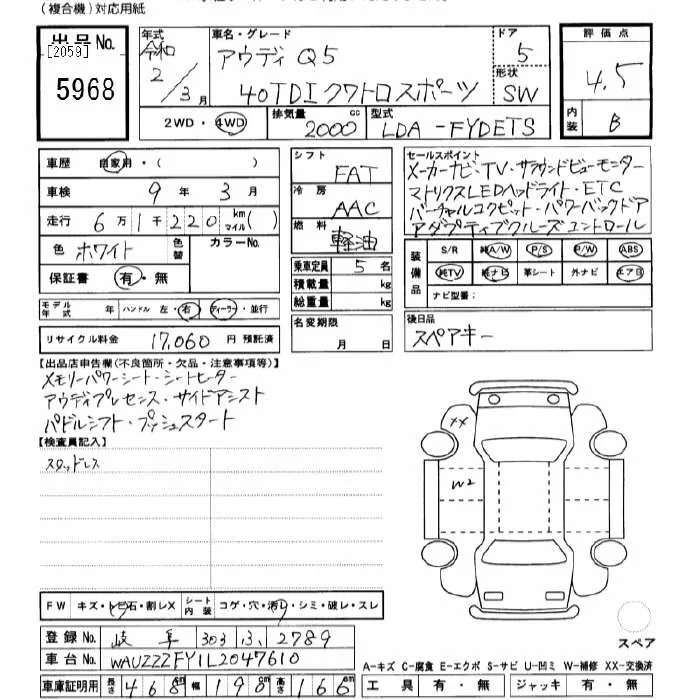 (複合機)対応用紙
出品No.
[2059]
5968
年式 令和 2/3月
車名・グレード
アウディ Q5
40TDIクワトロスポーツ
ドア 5
形状 SW
評価点
4.5
内装 B
2WD・4WD
排気量 2000 cc
型式 LDA-FYDETS
車歴 自家用・( )
車検 9年 3月
走行 6万1千220 km マイル( )
色 ホワイト 色替 カラーNo.
保証書 有・無
モデル年式 年 ハンドル 左・右 ディーラー・並行
リサイクル料金 17,060 円 預託済
シフト FAT
冷房 AAC
燃料 軽油
乗車定員 5 名
積載量 kg
総重量 kg
名変期限
月 日
セールスポイント
メーカーナビ、TV・サラウンドビューモニター
マトリクスLEDヘッドライト・ETC
バーチャルコクピット・パワーバックドア
アダプティブクルーズコントロール
装備品
S/R 純A/W P/S P/W ABS
純TV 純ナビ 革シート 外ナビ エアB
ナビ型番:
後日品
スペアキー
【出品店申告欄(不良箇所・欠品・注意事項等)】
メモリーパワーシート・シートヒーター
アウディプレセンス・サイドアシスト
パドルシフト・プッシュスタート
【検査員記入】
スタッドレス
XX
W2
FW キズ・トビ石・割レX シート内装 コゲ・穴・汚レ・シミ・破レ・スレ
登録No. 岐阜 303 ふ 2789
車台No. WAUZZZFY1L2047610
車庫証明用 長さ 468 幅 190 高さ 166
スペア
A-キズ C-腐食 E-エクボ S-サビ U-凹ミ W-補修 XX-交換済
工具 有・無 ジャッキ 有・無